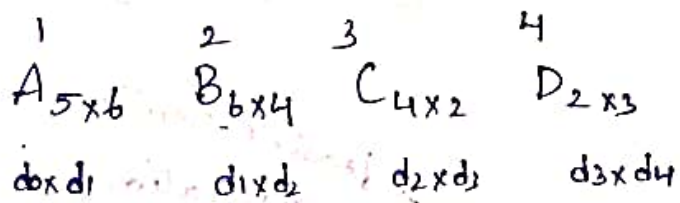 1 2 3 4
A5×6 B6×4 C4×2 D2×3
d0×d1 d1×d2 d2×d3 d3×d4